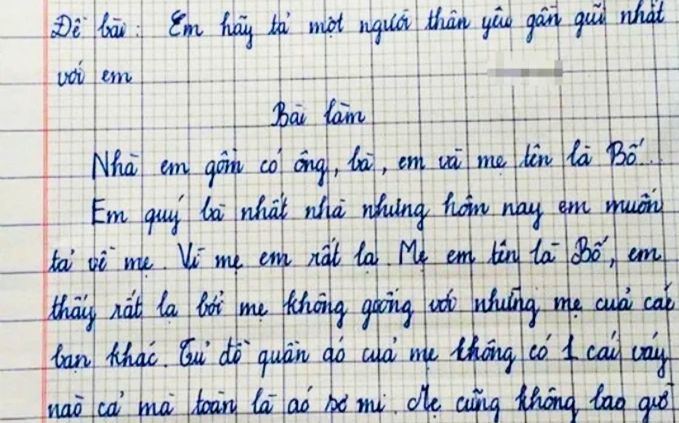 Đề bài: Em hãy tả một người thân yêu gần gũi nhất
với em
Bài làm
Nhà em gồm có ông, bà, em và mẹ tên là Bố...
Em quý bà nhất nhà nhưng hôm nay em muốn
tả về mẹ. Vì mẹ em rất lạ. Mẹ em tên là Bố, em
thấy rất lạ bởi mẹ không giống với những mẹ của các
bạn khác. Tủ đồ quần áo của mẹ không có 1 cái váy
nào cả mà toàn là áo sơ mi. Mẹ cũng không bao giờ